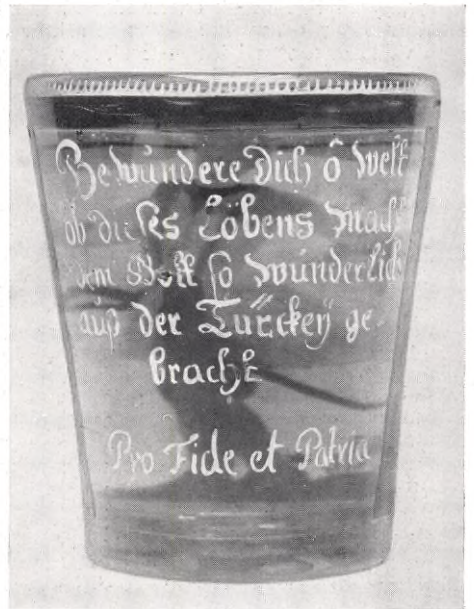 Bewúndere Dich ô Welt
ob dießes Löbens Macht
den Gott so wúnderlich
aúß der Türckeÿ ge-
bracht
Pro Fide et Patria